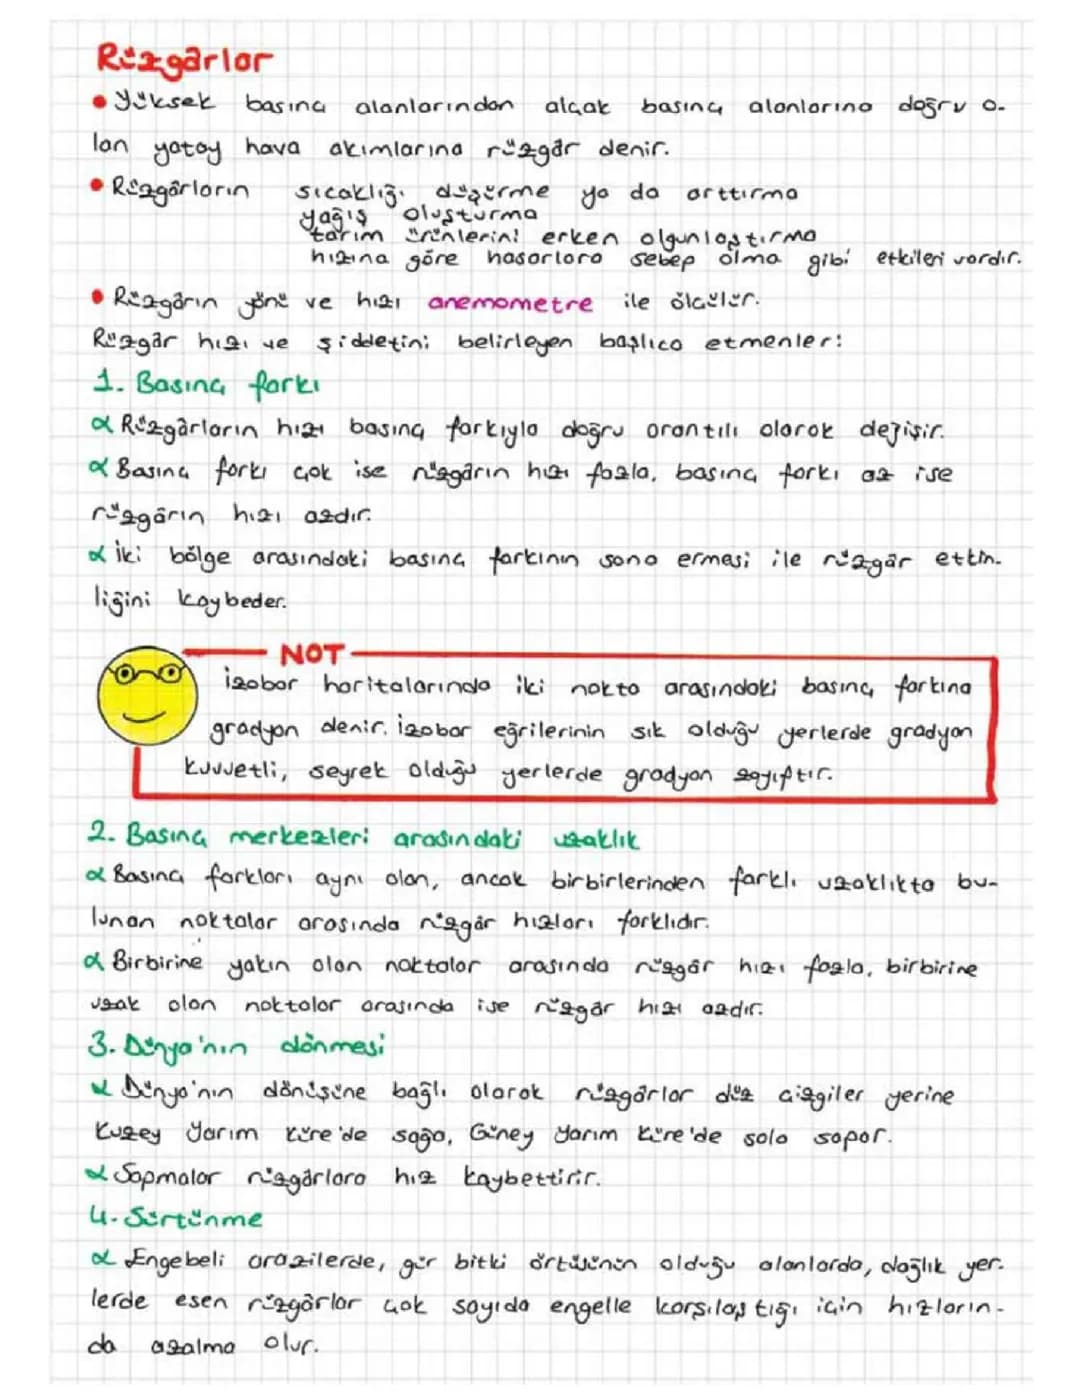 Rüzgârlar
• Yüksek basınç alanlarından alçak basınç alanlarına doğru o-
lan yatay hava akımlarına rüzgâr denir.
• Rüzgârların sıcaklığı düşürme ya da arttırma
yağış oluşturma
tarım ürünlerini erken olgunlaştırma
hızına göre hasarlara sebep olma gibi etkileri vardır.
• Rüzgârın yönü ve hızı anemometre ile ölçülür.
Rüzgâr hızı ve şiddetini belirleyen başlıca etmenler:
1. Basınç farkı
α Rüzgârların hızı basınç farkıyla doğru orantılı olarak değişir.
α Basınç farkı çok ise rüzgârın hızı fazla, basınç farkı az ise
rüzgârın hızı azdır.
α İki bölge arasındaki basınç farkının sona ermesi ile rüzgâr etkin-
liğini kaybeder.
NOT
İzobar haritalarında iki nokta arasındaki basınç farkına
gradyan denir. İzobar eğrilerinin sık olduğu yerlerde gradyan
kuvvetli, seyrek olduğu yerlerde gradyan zayıftır.
2. Basınç merkezleri arasındaki uzaklık
α Basınç farkları aynı olan, ancak birbirlerinden farklı uzaklıkta bu-
lunan noktalar arasında rüzgâr hızları farklıdır.
α Birbirine yakın olan noktalar arasında rüzgâr hızı fazla, birbirine
uzak olan noktalar arasında ise rüzgâr hızı azdır.
3. Dünya'nın dönmesi
α Dünya'nın dönüşüne bağlı olarak rüzgârlar düz çizgiler yerine
Kuzey Yarım Küre'de sağa, Güney Yarım Küre'de sola sapar.
α Sapmalar rüzgârlara hız kaybettirir.
4. Sürtünme
α Engebeli arazilerde, gür bitki örtüsünün olduğu alanlarda, dağlık yer-
lerde esen rüzgârlar çok sayıda engelle karşılaştığı için hızların-
da azalma olur.